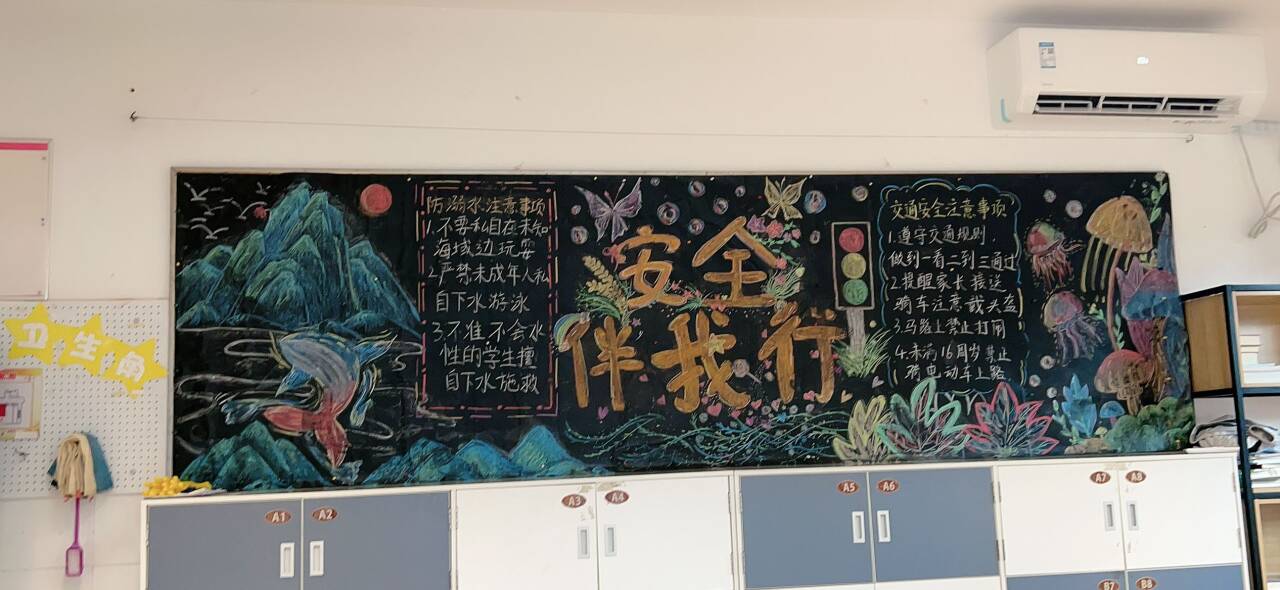 卫生角
防溺水注意事项
1.不要私自在未知
海域边玩耍
2.严禁未成年人私
自下水游泳
3.不准不会水
性的学生擅
自下水施救
安全
伴我行
交通安全注意事项
1.遵守交通规则,
做到一看二到三通过
2.提醒家长接送
骑车注意戴头盔
3.马路上禁止打闹
4.未满16周岁禁止
骑电动车上路
A1
A2
A3
A4
A5
A6
A7
A8
B7
B8